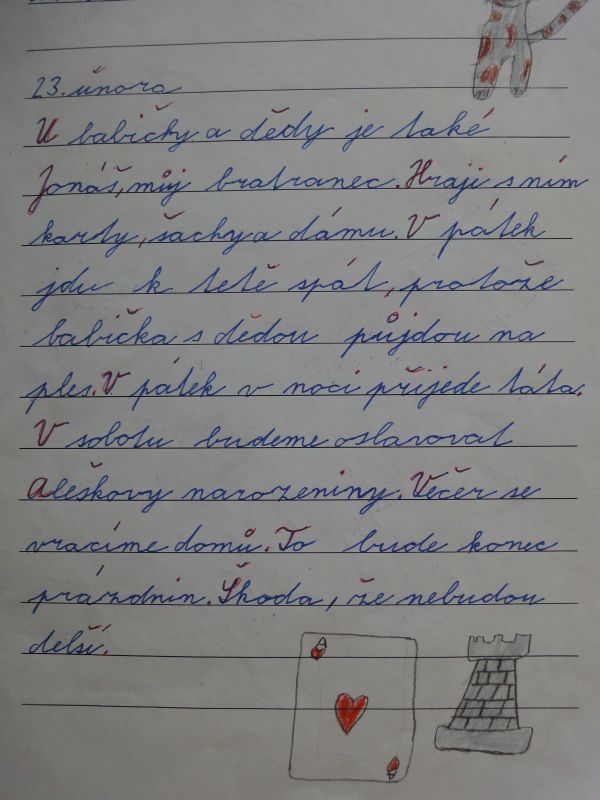 23. února
U babičky a dědy je také
Jonáš, můj bratranec. Hraji s ním
karty, šachy a dámu. V pátek
jdu k tetě spát, protože
babička s dědou půjdou na
ples. V pátek v noci přijede táta.
V sobotu budeme oslavovat
Aleškovy narozeniny. Večer se
vracíme domů. To bude konec
prázdnin. Škoda, že nebudou
delší.
A